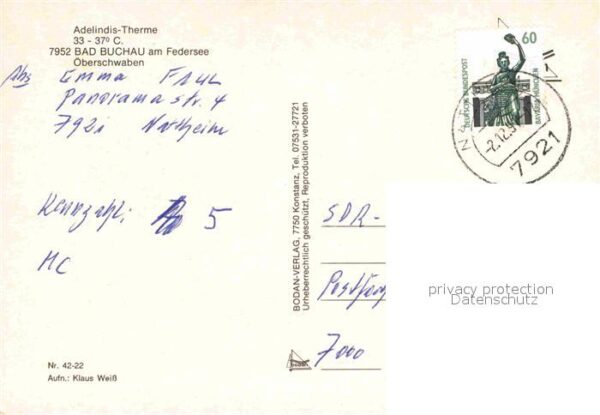 Adelindis-Therme
33 - 37º C.
7952 BAD BUCHAU am Federsee
Oberschwaben
Abs Emma Faul
Panoramastr. 4
7921 Nattheim
Kennzahl: 5
MC
Nr. 42-22
Aufn.: Klaus Weiß
BODAN-VERLAG, 7750 Konstanz, Tel. 07531-27721
Urheberrechtlich geschützt, Reproduktion verboten
60
DEUTSCHE BUNDESPOST
BAVARIA MÜNCHEN
7921
SDR-
Postfach
7000
privacy protection
Datenschutz